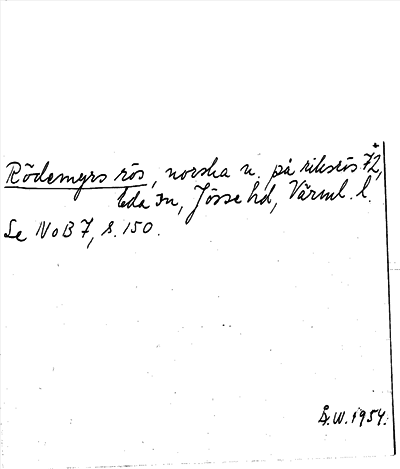 Rödemyrs rös, norska n. på riksrös 72,
Eda sn, Jösse hd, Värml. l.
Se NoB 7, s. 150.
Å.W. 1954.